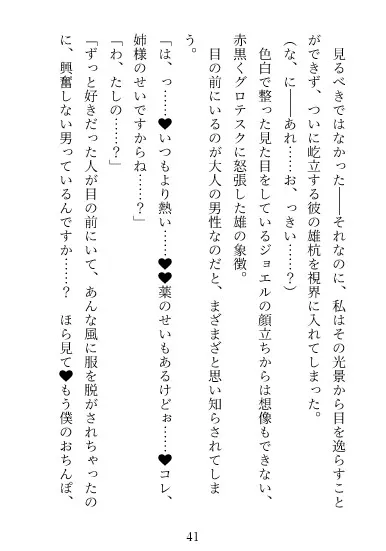 見るべきではなかった――それなのに、私はその光景から目を逸らすこと
ができず、ついに屹立する彼の雄杭を視界に入れてしまった。
（な、に――あれ……お、っきい……？）
　色白で整った見た目をしているジョエルの顔立ちからは想像もできない、
赤黒くグロテスクに怒張した雄の象徴。
　目の前にいるのが大人の男性なのだと、まざまざと思い知らされてしま
う。
「は、っ……♥いつもより熱い……♥♥薬のせいもあるけどぉ……♥コレ、
姉様のせいですからね……？」
「わ、たしの……？」
「ずっと好きだった人が目の前にいて、あんな風に服を脱がされちゃったの
に、興奮しない男っているんですか……？　ほら見て♥もう僕のおちんぽ、
41